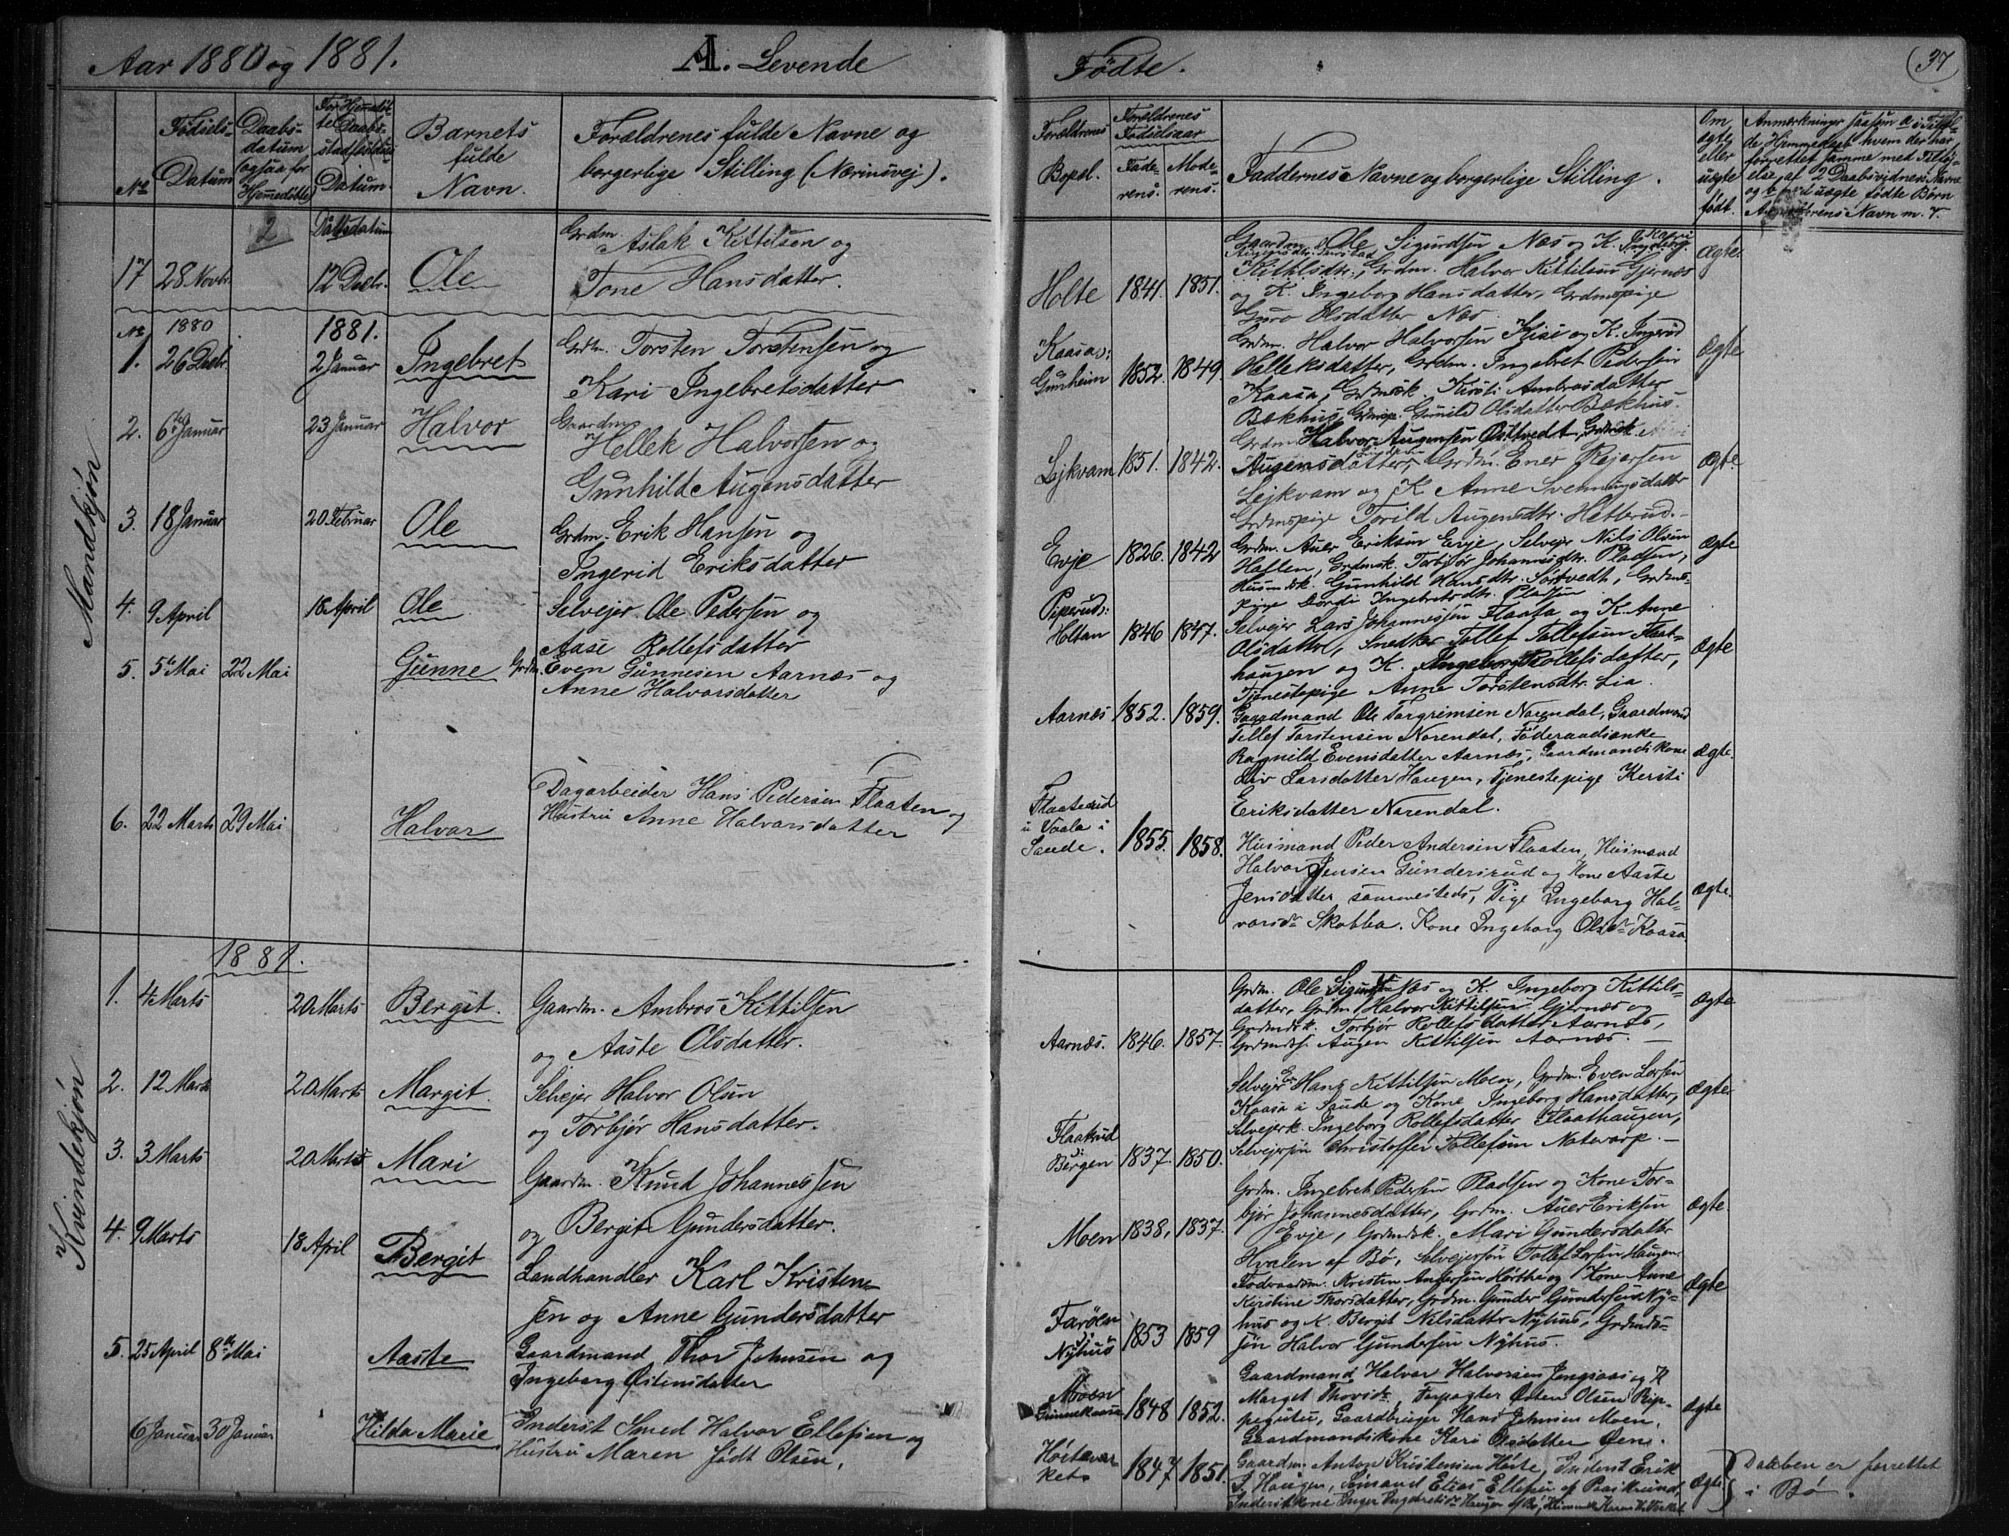 Aar 1880 og 1881.
A. Levende
Fødte.
37
No
Fødsels-
Datum
Daabs-
datum
(ogsaa for
Hjemmedøbte)
For Hjemmedøb-
te Daabs-
stadfæstelses
Datum.
Barnets
fulde
Navn.
Forældrenes fulde Navne og
borgerlige Stilling (Næringsvej).
Forældrenes
Bopæl.
Forældrenes
Fødselsaar
Fade-
rens.
Mode-
rens.
Faddernes Navne og borgerlige Stilling.
Om
ægte
eller
uægte
født.
Mandkjøn
17
28 Novbr.
12 Decbr.
Ole
Grdm. Aslak Kittilsen og
Tone Hansdatter.
Holte 1841. 1851.
Gaardm. Ole Sigurdsen Næs og K. Ingeborg
Kittilsdtr., Grdm. Halvor Kittilsen Gjernæs
og K. Ingeborg Hansdatter, Grdmspige
Guro Olsdatter Næs.
Ægte
No 1880
1881.
1. 26 Decbr. 2 Januar
Ingebret
Grdm. Torsten Torstensen og
Kari Ingebretsdatter
Kaasa i
Gunheim 1852. 1849.
Grdm. Halvor Halvorsen Kise og K. Ingerid
Helleksdatter, Grdm. Ingebret Pedersen
Kaasa, Grdmsk. Kirsti Ambrosdatter
Bakhus, Grdmsp. Gunild Olsdatter Bakhus.
Ægte
2. 6te Januar 23 Januar
Halvor
Gaardm.
Hellek Halvorsen og
Gunhild Augensdatter
Lejkvam 1851. 1842.
Grdm. Halvor Augensen Østtvedt, Grdmsk.
Augensdatter, Grdm. Ener Rejersen
Lejkvam og K. Anne Svenningsdatter
Grdmspige Torild Augensdtr. Hetterud.
Ægte
3. 18 Januar 20 Februar
Ole
Grdm. Erik Hansen og
Ingerid Eriksdatter
Evje 1826. 1842
Grdm. Auer Eriksen Evje, Selvejer Nils Olsen
Heften, Grdmsk. Torbjør Johannesdtr. Pladsen,
Husmdsk. Gunhild Hansdtr. Sørtvedt, Grdms-
pige Dordi Ingebretsdtr. Pladsen
Ægte
4. 9 April 18 April
Ole
Selvejer Ole Pedersen og
Aase Rollefsdatter
Piperud i
Holtan 1846 1847.
Selvejer Lars Johannessen Flaata og K. Anne
Olsdatter, Snedker Tollef Tollefsen Flaat-
haugen og K. Ingeborg Rollefsdatter,
Tjenestepige Anne Torstensdtr. Lia.
Ægte
5. 5te Mai 22 Mai
Gunne
Grdm. Even Gunnesen Aarnæs og
Anne Halvorsdatter
Aarnæs 1852. 1859.
Gaardmand Ole Torgrimsen Narendal, Gaardmand
Tellef Torstensen Norendal, Føderaadsenke
Ragnild Evensdatter Aarnæs, Gaardmandskone
Liv Larsdatter Haugen, Tjenestepige Kersti
Eriksdatter Narendal.
Ægte
6. 22 Marts 29 Mai
Halvor
Dagarbeider Hans Pedersen Flaaten og
Hustru Anne Halvorsdatter
Flaaterud
i Vaala i
Saude. 1855. 1858.
Husmand Peder Andersen Flaaten, Husmand
Halvor Jensen Gundersrud og Kone Aaste
Jensdatter sammesteds, Pige Ingeborg Hal-
vorsdr. Skobba. Kone Ingeborg Olsdr. Kaasa
Ægte
Kvindekjøn
1881.
1. 4 Marts 20 Marts
Bergit.
Gaardm. Ambros Kittilsen
og Aaste Olsdatter.
Aarnæs. 1846. 1857.
Grdm. Ole Sigurdsen Næs og K. Ingeborg Kittils-
datter, Grdm. Halvor Kittilsen Gjernæs og
Grdmdsk. Torbjør Rollefsdatter Aarnæs,
Grdmds. Augen Kittilsen Aarnæs.
Ægte
2. 12 Marts 20 Marts
Margit.
Selvejer Halvor Olsen
og Torbjør Hansdatter.
Flaaterud
i
Bergen 1837. 1850.
Selvejer Hans Kittilsen Moen, Grdm. Even Larsen
Kaasa i Saude og Kone Ingeborg Hansdatter,
Selvejerk. Ingeborg Rollefsdatter Flaathaugen,
Selvejersøn Christoffer Tollefsen Natvarp.
Ægte
3. 3 Marts 20 Marts
Mari
Gaardm. Knud Johannessen
og Bergit Gundersdatter.
Moen 1838, 1837.
Grdm. Ingebret Pedersen Pladsen og Kone Tor-
bjør Johannesdatter, Grdm. Auer Eriksen
Evje, Grdmdsk. Mari Gundersdatter
Hvalen af Bø, Selvejersøn Tollef Larsen Haugen.
Ægte
4. 9 Marts 18 April
Bergit
Landhandler Karl Kristen-
sen og Anne Gundersdatter
Farøen
i
Nyhus 1853 1859
Føderaadsm. Kristen Andersen Hørthe og Kone Anne
Kirstine Thorsdatter, Grdm. Gunder Gundersen Ny-
hus og K. Bergit Nilsdatter Nyhus, Grdmds-
søn Halvor Gundersen Nyhus.
Ægte
5. 25 April 8de Mai
Aaste
Gaardmand Thor Johnsen og
Ingeborg Østensdatter
Moen
Gunnekaasa 1848 1852.
Gaardmand Halvor Halvorsen Jengsaas og K
Marget Thovsdr. Forpagter Østen Olsen Rip-
pegutu, Gaardbruger Hans Johnsen Moen,
Gaardmandskone Kari Olsdatter Øens.
Ægte
6 Januar 30 Januar
Hilda Marie
Inderst Smed Halvor Ellefsen og
Hustru Maren født Olsen.
Høitevar-
ket 1847 1851.
Gaardm. Anton Kristensen Hørte, Inderst Erik
J. Haugen, Sømand Elias Ellefsen af Porsgrund,
Inderstkone Inger Ingebretsdr. Haugen af Bø,
Ægte
Daaben er forrettet
i Bø.